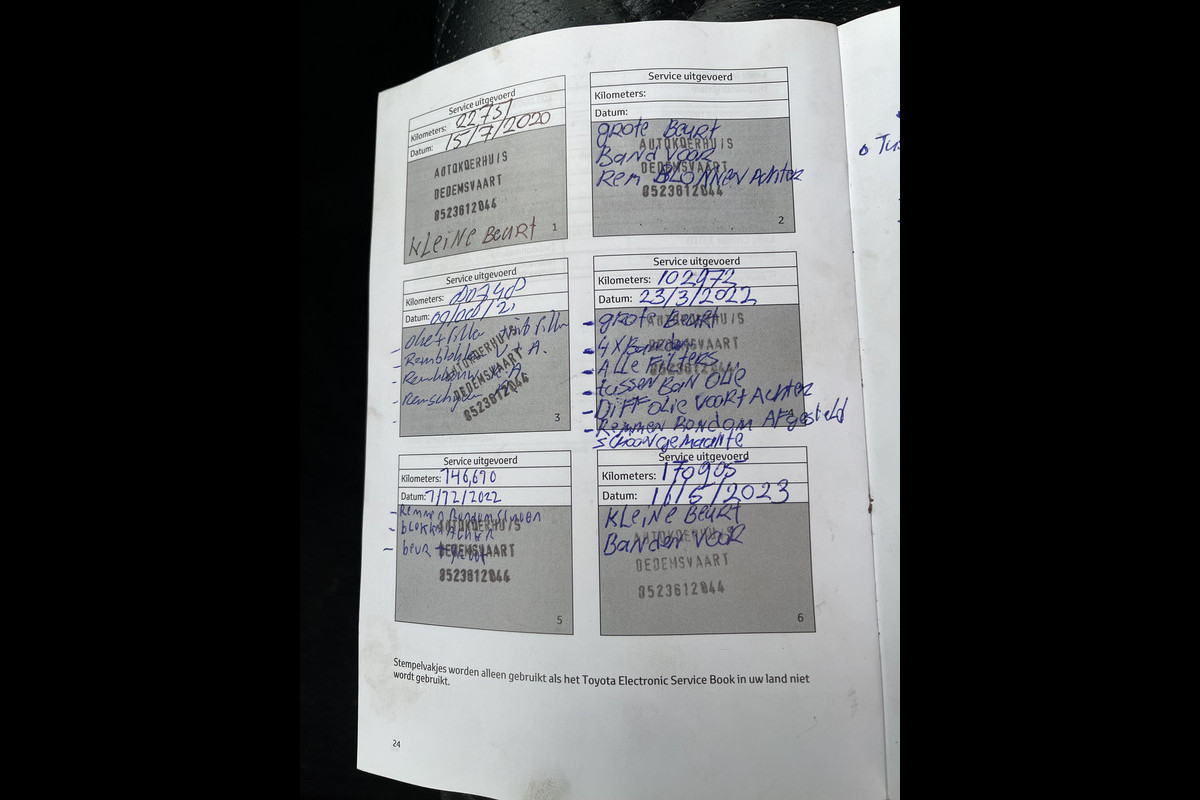 Service uitgevoerd
Kilometers: 22751
Datum: 15/7/2020
AUTOKOERHUIS
DEDEMSVAART
0523612044
KLEINE BEURT
1
Service uitgevoerd
Kilometers:
Datum:
GROTE BEURT
BAND VOOR
REM BLOKKEN ACHTER
AUTOKOERHUIS
DEDEMSVAART
0523612044
2
Service uitgevoerd
Kilometers:
Datum:
- Remblokken V + A.
- Remschijven
AUTOKOERHUIS
DEDEMSVAART
0523612044
3
Service uitgevoerd
Kilometers: 102972
Datum: 23/3/2022
- GROTE BEURT
- 4X Banden
- ALLE FILTERS
- tussen BAK OLIE
- DIFF OLIE VOOR+ ACHTER
- REMMEN RONDOM AFgesteld
schoongemaakte
AUTOKOERHUIS
DEDEMSVAART
Service uitgevoerd
Kilometers: 146,690
Datum: 7/12/2022
- Remmen Rondom
- blokken Achter
- beurt groot
AUTOKOERHUIS
DEDEMSVAART
0523612044
5
Service uitgevoerd
Kilometers: 170905
Datum: 16/5/2023
KLEINE BEURT
BANDEN VOOR
AUTOKOERHUIS
DEDEMSVAART
0523612044
6
Stempelvakjes worden alleen gebruikt als het Toyota Electronic Service Book in uw land niet
wordt gebruikt.
24